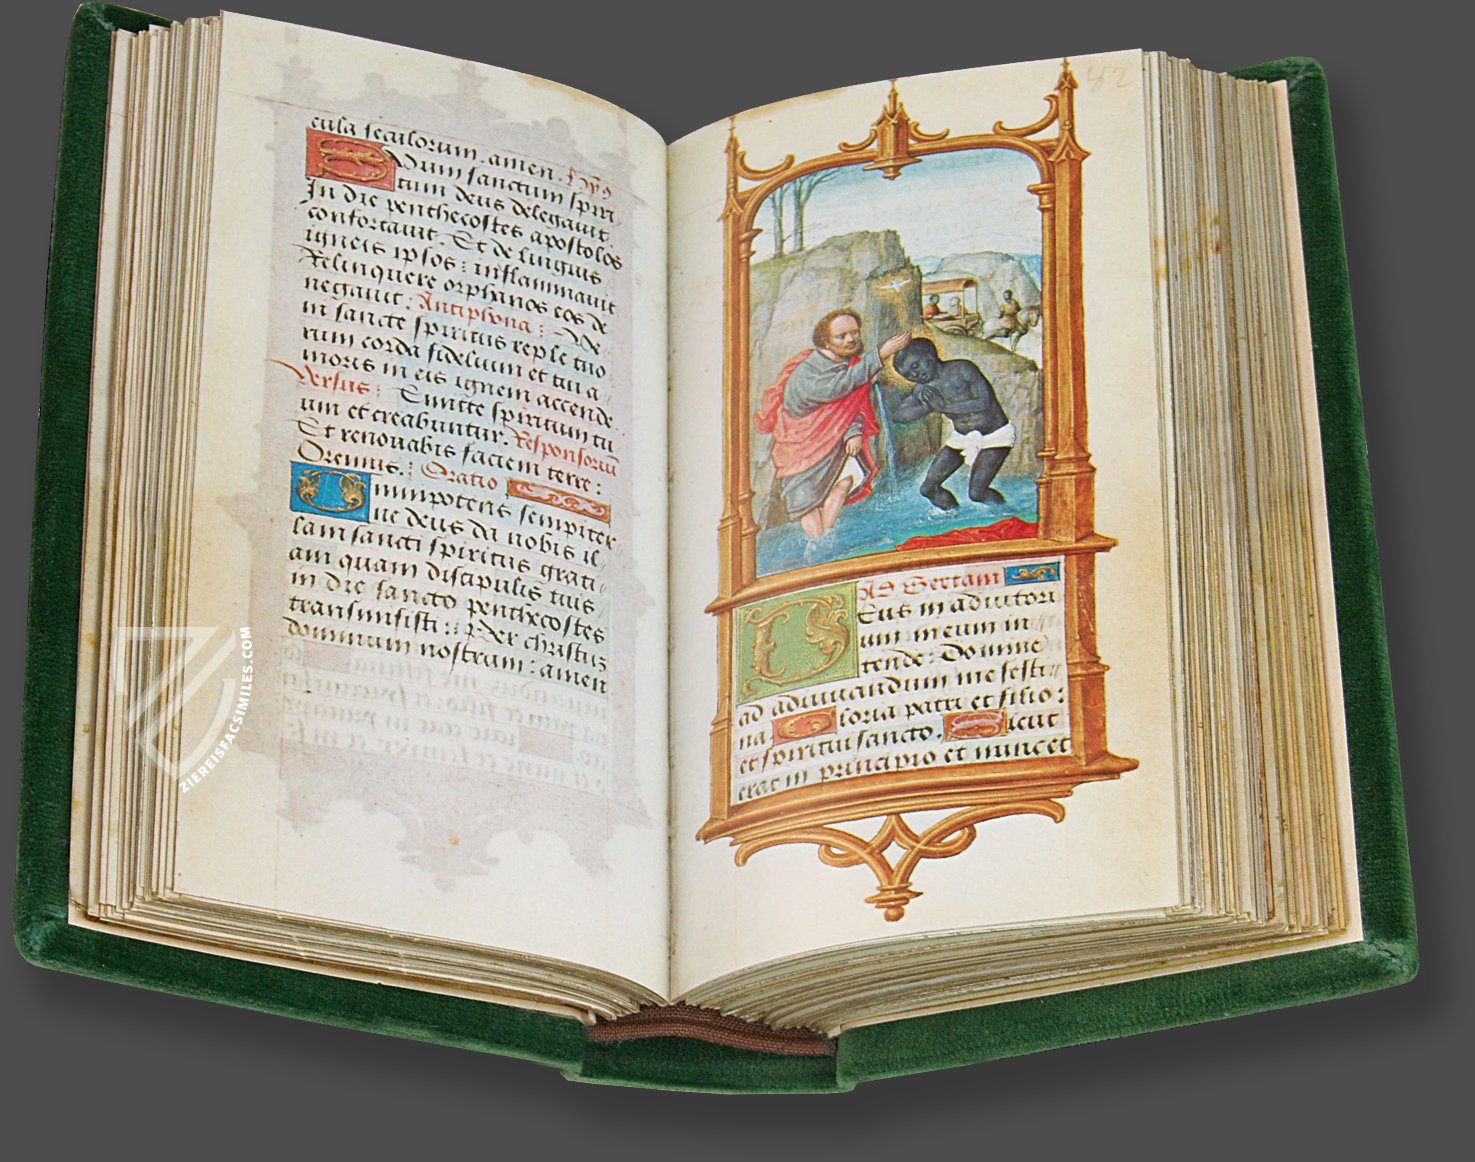 cula seculorum. amen. Hym9
Sanctum spiri
tum deus delegavit
In die penthecostes apostolos
confortavit. Et de linguis
igneis ipsos: inflammavit
Relinquere orphanos eos de
negavit: Antiphona:
ni sancte spiritus reple tuo
rum corda fidelium et tui a
moris in eis ignem accende
Versus: Emitte spiritum tu
um et creabuntur. Responsoriū
Et renovabis faciem terre:
Oremus. Oratio
Omnipotens sempiter
ne deus da nobis il
lam sancti spiritus grati
am quam discipulis tuis
in die sancto penthecostes
transmisisti: Per christuz
dominum nostrum: amen
82
Ad Sextam
Deus in adiutori
um meum in
tende: Domine
ad adiuvandum me festi
na. Gloria patri et filio:
et spiritui sancto. Sicut
erat in principio et nunc et
ZIEREISFACSIMILES.COM